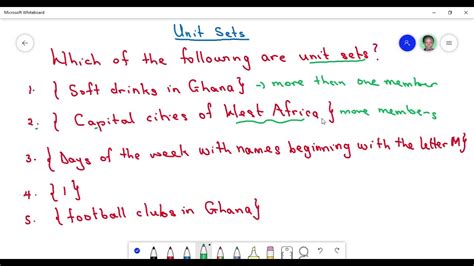 Microsoft Whiteboard
Unit Sets
Which of the following are unit sets?
1. { Soft drinks in Ghana} → more than one member
2. { Capital cities of West Africa } more members
3. {Days of the week with names beginning with the letter M}
4. {1}
5. {football clubs in Ghana}